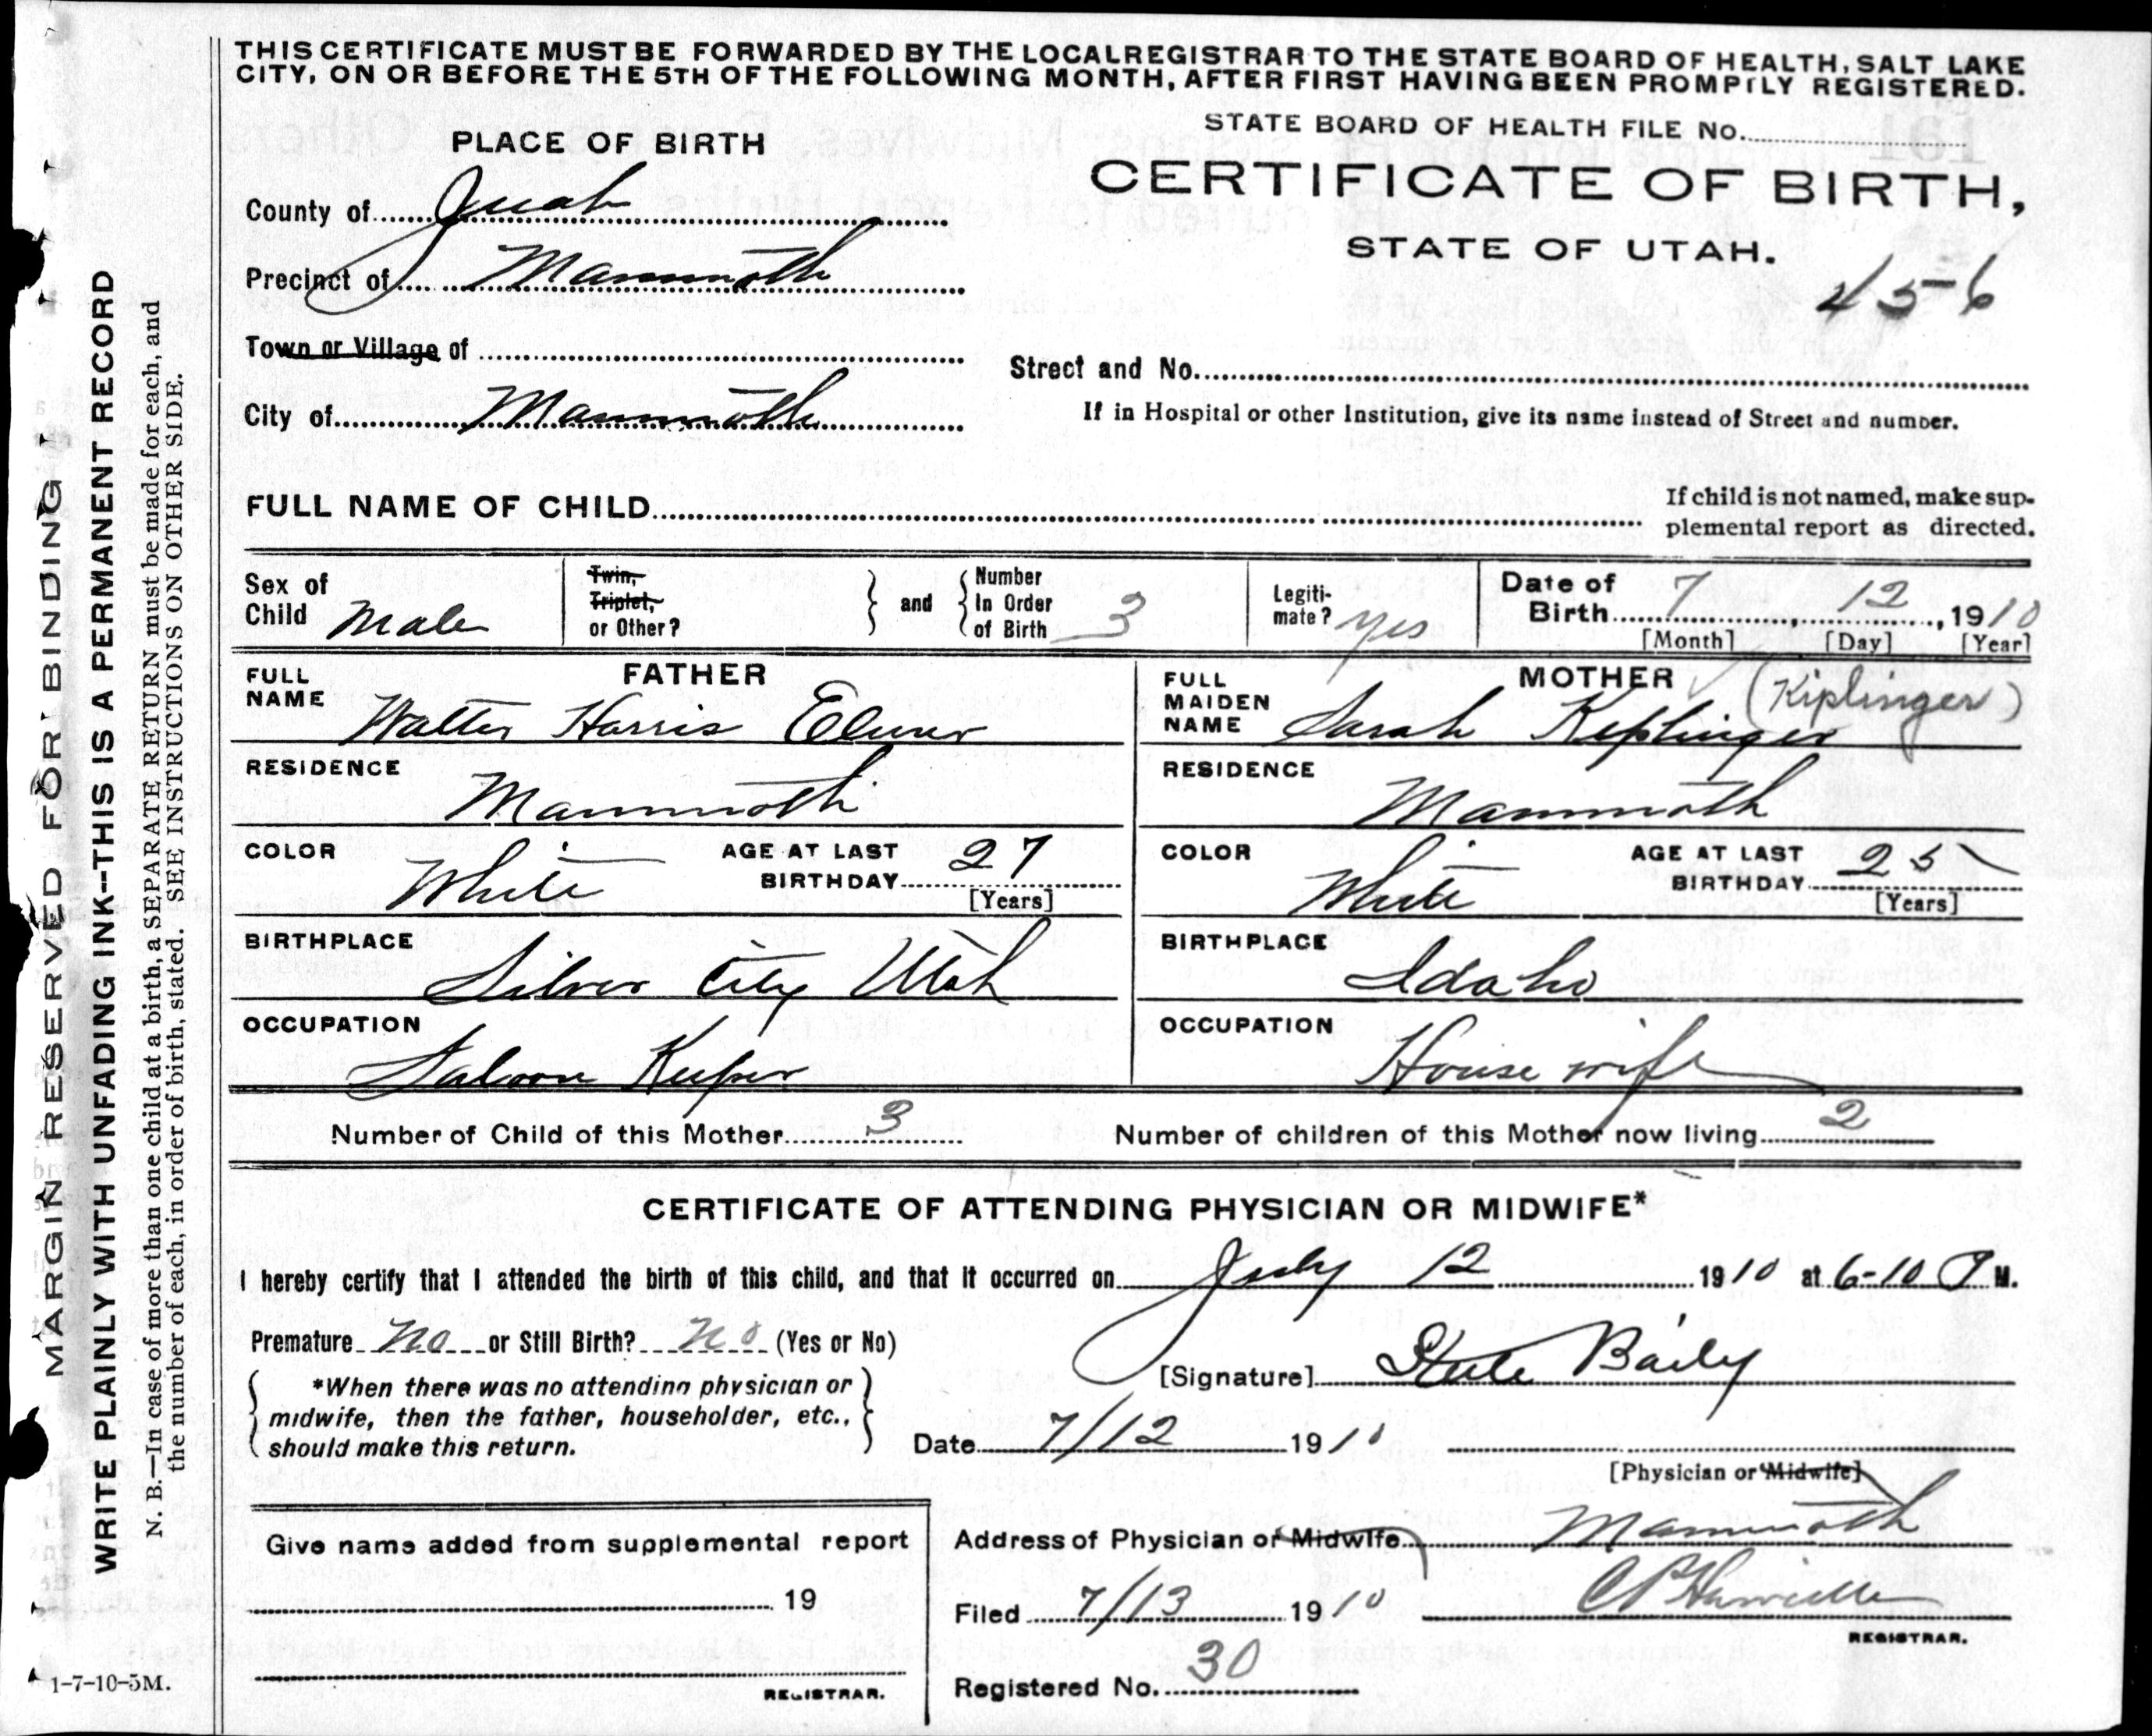 THIS CERTIFICATE MUST BE FORWARDED BY THE LOCAL REGISTRAR TO THE STATE BOARD OF HEALTH, SALT LAKE
CITY, ON OR BEFORE THE 5TH OF THE FOLLOWING MONTH, AFTER FIRST HAVING BEEN PROMPTLY REGISTERED.
STATE BOARD OF HEALTH FILE No.
PLACE OF BIRTH
CERTIFICATE OF BIRTH,
STATE OF UTAH.
456
County of Juab
Precinct of Mammoth
Town or Village of
Street and No.
City of Mammoth
If in Hospital or other Institution, give its name instead of Street and number.
FULL NAME OF CHILD
If child is not named, make sup-
plemental report as directed.
Sex of Child Male
Twin, Triplet, or Other?
and
Number In Order of Birth 3
Legiti-mate? yes
Date of Birth 7 12, 1910
[Month] [Day] [Year]
FATHER
FULL NAME Walter Harris Elmer
RESIDENCE Mammoth
COLOR White AGE AT LAST BIRTHDAY 27
[Years]
BIRTHPLACE Silver City Utah
OCCUPATION Saloon Keeper
MOTHER (Kiplinger)
FULL MAIDEN NAME Sarah Keplinger
RESIDENCE Mammoth
COLOR White AGE AT LAST BIRTHDAY 25
[Years]
BIRTHPLACE Idaho
OCCUPATION House wife
Number of Child of this Mother 3 Number of children of this Mother now living 2
CERTIFICATE OF ATTENDING PHYSICIAN OR MIDWIFE*
I hereby certify that I attended the birth of this child, and that it occurred on July 12 1910 at 6-10 P M.
Premature No or Still Birth? No (Yes or No)
*When there was no attending physician or
midwife, then the father, householder, etc.,
should make this return.
[Signature] Steele Baily
Date 7/12 1910
[Physician or Midwife]
Address of Physician or Midwife Mammoth
Give name added from supplemental report
19
REGISTRAR.
Filed 7/13 1910
REGISTRAR.
Registered No. 30
MARGIN RESERVED FOR BINDING
WRITE PLAINLY WITH UNFADING INK--THIS IS A PERMANENT RECORD
N. B.—In case of more than one child at a birth, a SEPARATE RETURN must be made for each, and
the number of each, in order of birth, stated. SEE INSTRUCTIONS ON OTHER SIDE.
1-7-10-5M.